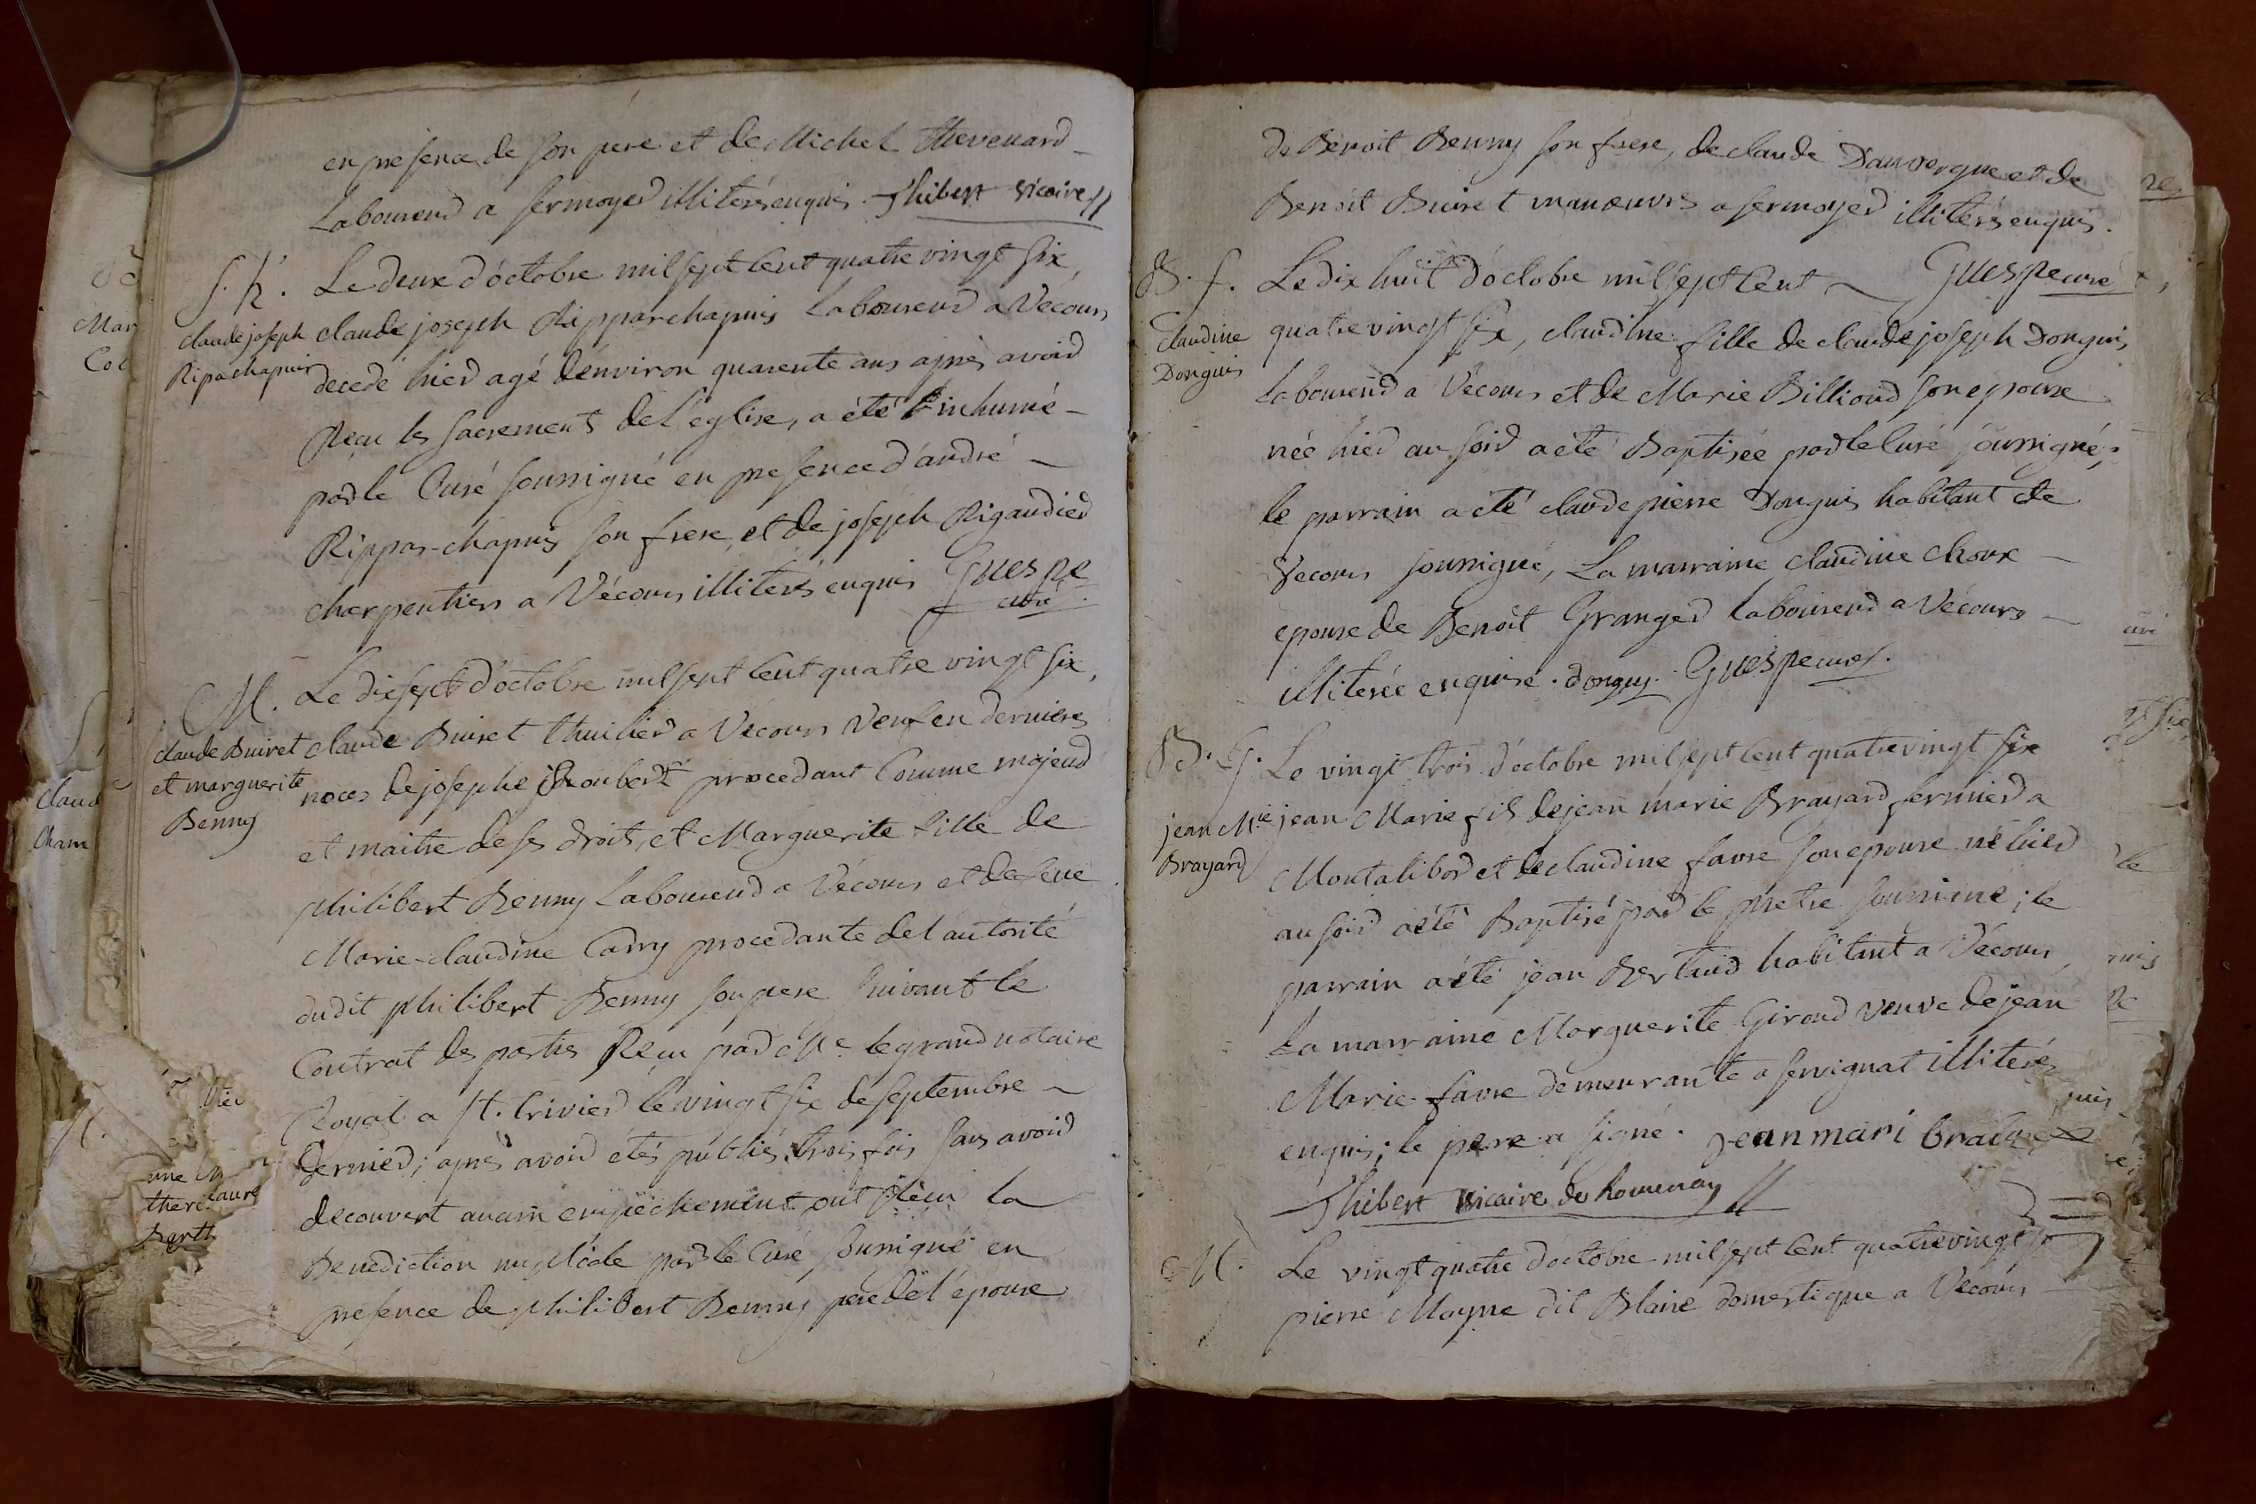 en presence de son pere et de Michel thevenard
Laboureur a sermoyer illiterés enquis. Thibert vicaire
S. h.
Claude joseph
Ripachapuis
Le deux d'octobre mil sept Cent quatre vingt six,
claude joseph Ripparchapuis Laboureur a Vécours
decedé hier agé d'environ quarente ans après avoir
Reçu les sacrements de l'eglise, a été inhumé
par le Curé soussigné en presence d'andré
Rippar-chapuis son frere, et de joseph Rigaudier
charpentiers a Vécours illiterés enquis Guespe
curé
M.
claude Buiret
et marguerite
Benny
Le dix sept d'octobre mil sept Cent quatre vingt six,
claude Buiret thuilier a Vécours veuf en dernieres
noces de josephe joubert procedant Comme majeur
et maitre de ses droits, et Marguerite fille de
philibert Benny Laboureur a Vécours et de feüe
Marie-claudine Carry procedante de l'autorité
dudit philibert Benny son pere suivant le
Contrat des parties Reçu par Me. legrand notaire
Royal a St. trivier le vingt six de septembre
dernier; après avoir étés publiés trois fois sans avoir
decouvert aucun empechement ont reçu la
Benediction nuptiale par le Curé soussigné en
presence de philibert Benny pere de l'epouse
de Benoit Benny son frere, de claude Dauvergne et de
Benoit Buiret manœuvres a sermoyer illiterés enquis.
Guespe curé
B. f.
Claudine
Donguis
Le dix huit d'octobre mil sept Cent
quatre vingt six, claudine fille de claude joseph Donguis
laboureur a Vécours et de Marie Billioud son epouse
née hier au soir a été Baptisée par le Curé soussigné;
le parrain a été claude pierre Donguis habitant de
Vecours soussigné, La marraine claudine choux
epouse de Benoît Granger laboureur a Vécours
illiterée enquise. donguy. Guespe curé.
B. G.
jean Mie
Brayard
Le vingt trois d'octobre mil sept Cent quatre vingt six
jean Marie fils de jean marie Brayard fermier a
Montalibord et de claudine favre son epouse né hier
au soir a été Baptisé par le pretre soussigné; le
parrain a été jean Bertaud habitant a Vécours,
La marraine Marguerite Giroud veuve de jean
Marie favre demeurante a servignat illiterés
enquis; le pere a signé. Jean mari
Thibert vicaire de Romenay
M.
Le vingt quatre d'octobre mil sept Cent quatre vingt six
pierre Moyne dit Blaise domestique a Vécours